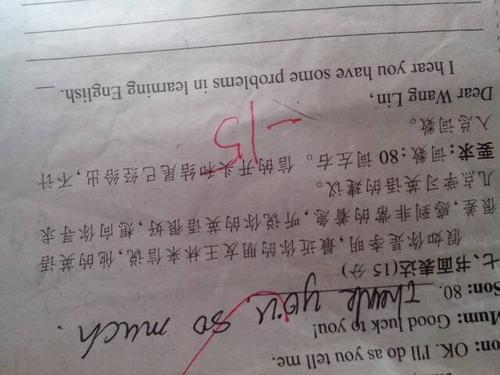 on: OK. I'll do as you tell me.
Mum: Good luck to you!
Son: 80. Thank you so much.
七、书面表达(15分)
假如你是李明,最近你的朋友王林来信说,他的英语
很差,感到非常的着急,听说你的英语很好,想向你寻求
几点学习英语的建议。
要求:词数:80词左右。信的开头和结尾已经给出,不计
入总词数。
-15
Dear Wang Lin,
I hear you have some problems in learning English.